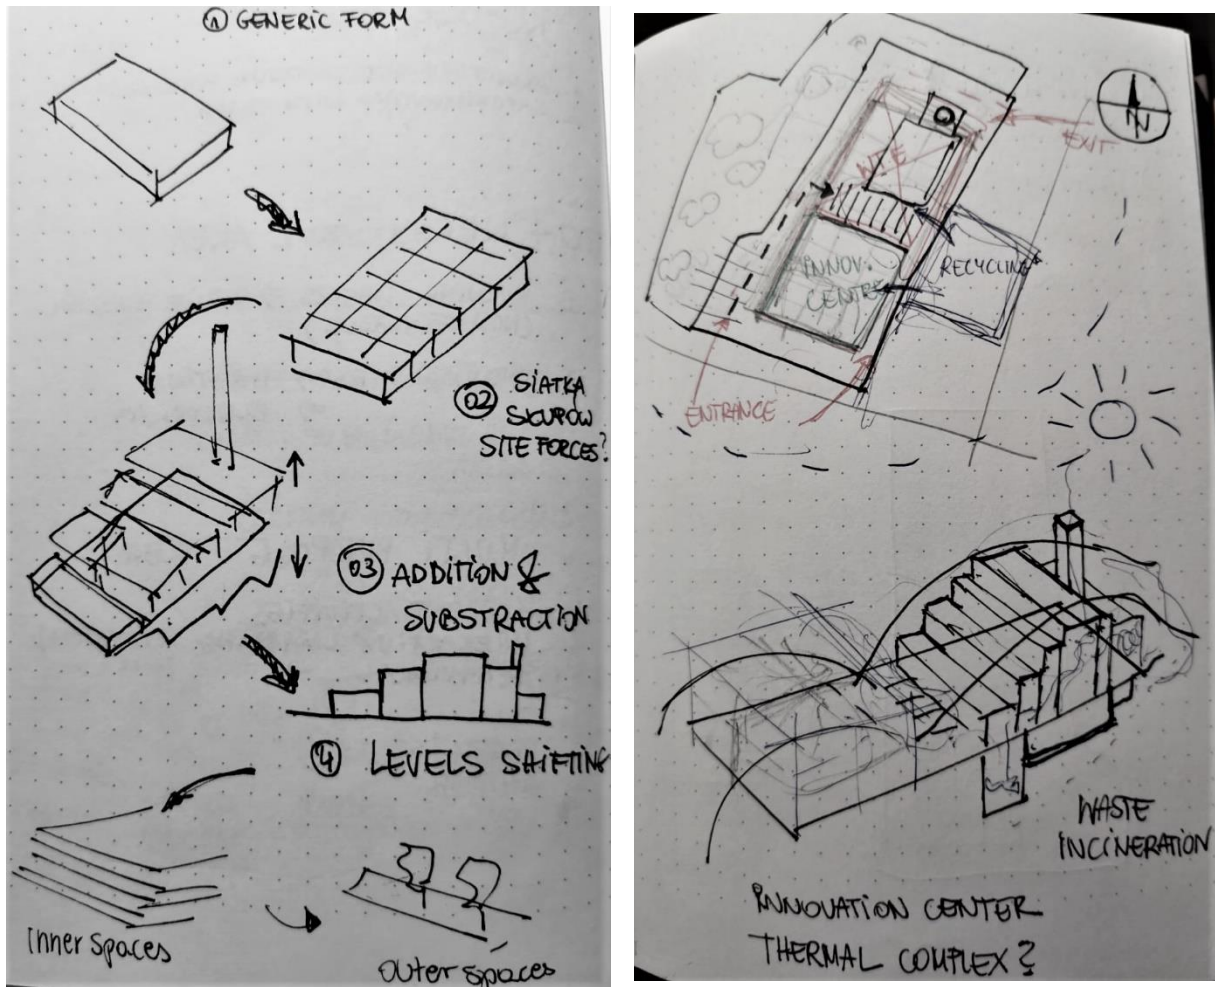 1 GENERIC FORM
02 SIATKA
SŁUPÓW
SITE FORCES?
03 ADDITION &
SUBSTRACTION
4 LEVELS SHIFTING
Inner Spaces
Outer spaces
N
EXIT
W.T.E
RECYCLING
INNOV.
CENTRE
ENTRANCE
WASTE
INCINERATION
INNOVATION CENTER
THERMAL COMPLEX?